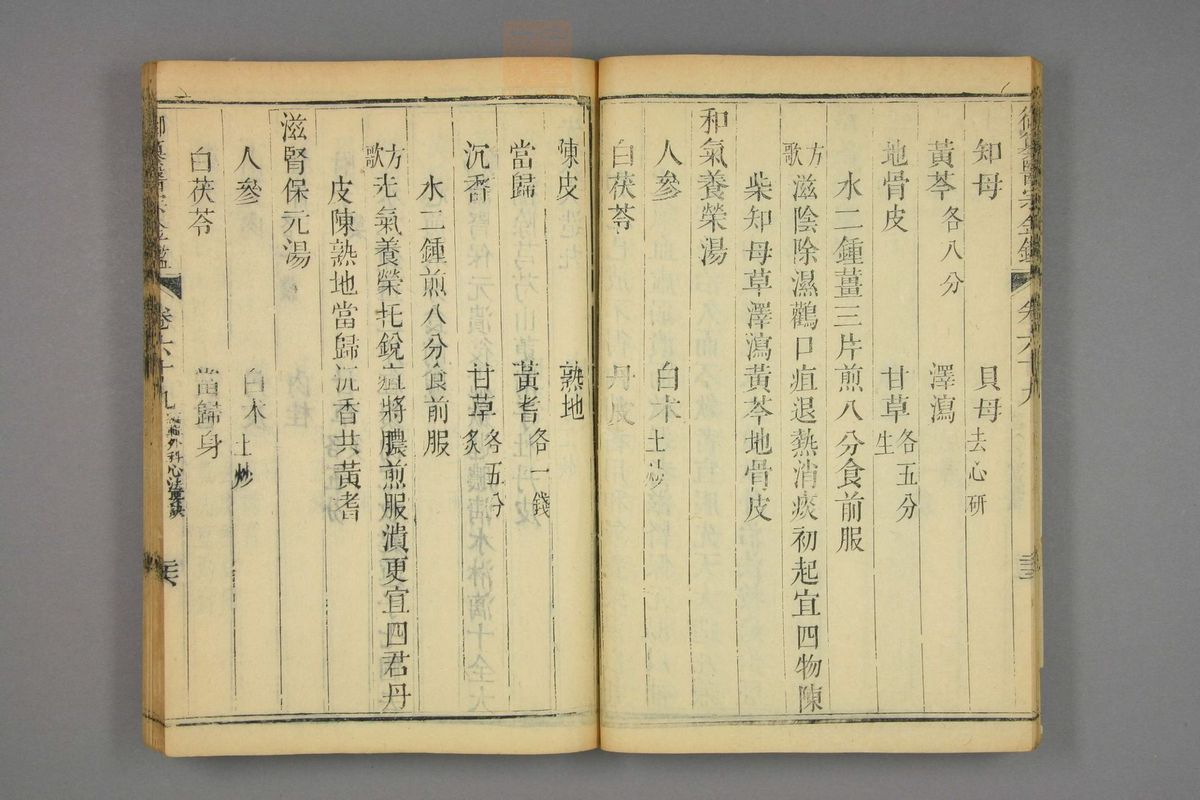 知母　貝母去心研
黃芩各八分　澤瀉
地骨皮　甘草生各五分
水二鍾薑三片煎八分食前服
方歌　滋陰除濕鸛口疽退熱消痰初起宜四物陳
柴知母草澤瀉黃芩地骨皮
和氣養榮湯
人參　白朮土炒
白茯苓　丹皮
陳皮　熟地
當歸　黃耆各一錢
沉香　甘草炙各五分
水二鍾煎八分食前服
方歌　氣養榮托銳疽將膿煎服潰更宜四君丹
皮陳熟地當歸沉香共黃耆
滋腎保元湯
人參　白朮土炒
白茯苓　當歸身
御纂醫宗金鑑　卷六十九　外科心法要訣